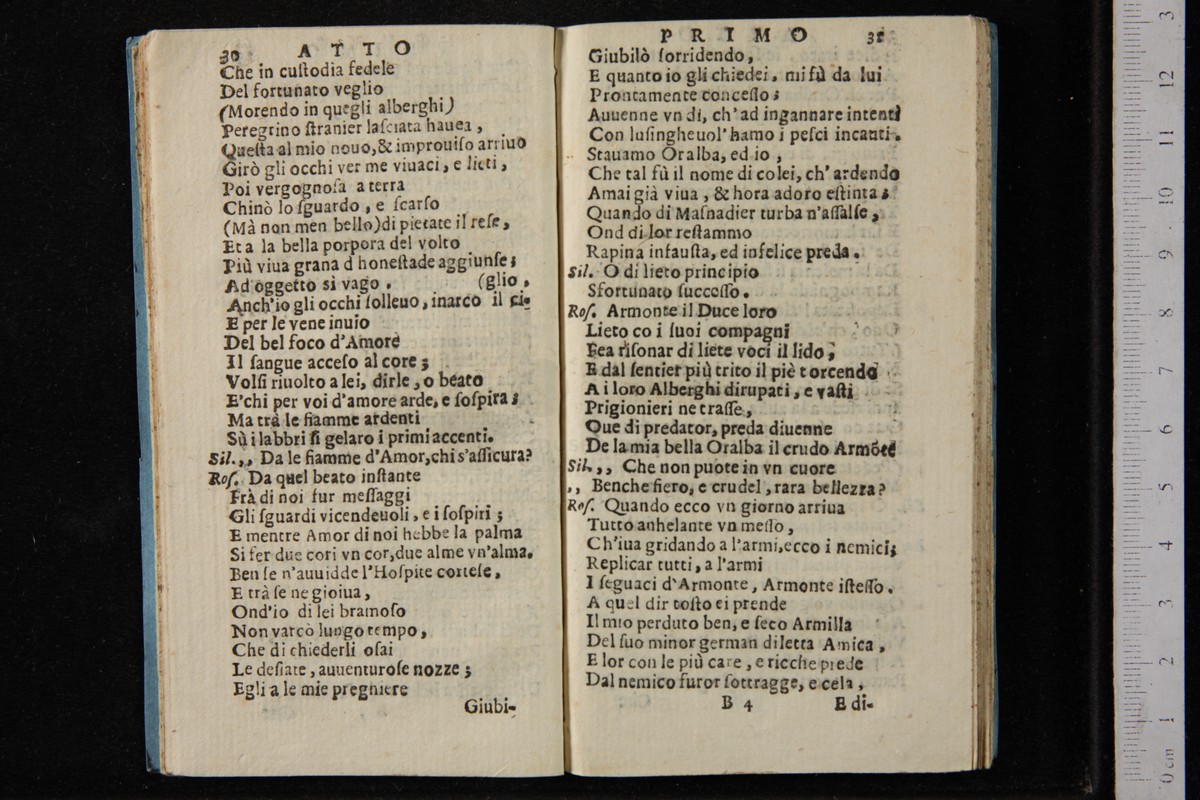 30 ATTO
Che in cuſtodia fedele
Del fortunato veglio
(Morendo in quegli alberghi)
Peregrino ſtranier laſciata hauea ,
Queſta al mio nouo,& improuiſo arriuo
Girò gli occhi ver me viuaci, e lieti ,
Poi vergognoſa a terra
Chinò lo ſguardo , e ſcarſo
(Mà non men bello)di pietate il reſe ,
Et a la bella porpora del volto
Più viua grana d honeſtade aggiunſe ;
Ad oggetto sì vago . (glio ,
Anch'io gli occhi ſolleuo , inarco il ci-
E per le vene inuio
Del bel foco d'Amore
Il ſangue acceſo al core ;
Volſi riuolto a lei, dirle , o beato
E'chi per voi d'amore arde, e ſoſpira ;
Ma trà le fiamme ardenti
Sù i labbri ſi gelaro i primi accenti.
Sil. ,, Da le fiamme d'Amor,chi s'aſſicura?
Roſ. Da quel beato inſtante
Frà di noi fur meſſaggi
Gli ſguardi vicendeuoli , e i ſoſpiri ;
E mentre Amor di noi hebbe la palma
Si fer due cori vn cor,due alme vn'alma.
Ben ſe n'auuidde l'Hoſpite corteſe ,
E trà ſe ne gioiua ,
Ond'io di lei bramoſo
Non varcò lungo tempo ,
Che di chiederli oſai
Le deſiate , auuenturoſe nozze ;
Egli a le mie preghiere
Giubi-
PRIMO 31
Giubilò ſorridendo ,
E quanto io gli chiedei , mi fù da lui
Prontamente conceſſo ;
Auuenne vn di, ch' ad ingannare intenti
Con luſingheuol' hamo i peſci incauti .
Stauamo Oralba, ed io ,
Che tal fù il nome di colei, ch' ardendo
Amai già viua , & hora adoro eſtinta ;
Quando di Maſnadier turba n'aſſalſe ,
Ond di lor reſtammo
Rapina infauſta, ed infelice preda .
Sil. O di lieto principio
Sfortunato ſucceſſo .
Roſ. Armonte il Duce loro
Lieto co i ſuoi compagni
Fea riſonar di liete voci il lido ;
E dal ſentier più trito il piè torcendo
A i loro Alberghi dirupati , e vaſti
Prigionieri ne traſſe ,
Oue di predator, preda diuenne
De la mia bella Oralba il crudo Armōte
Sil. ,, Che non puote in vn cuore
,, Benche fiero, e crudel , rara bellezza ?
Roſ. Quando ecco vn giorno arriua
Tutto anhelante vn meſſo ,
Ch'iua gridando a l'armi,ecco i nemici;
Replicar tutti , a l'armi
I ſeguaci d'Armonte, Armonte iſteſſo .
A quel dir toſto ei prende
Il mio perduto ben, e ſeco Armilla
Del ſuo minor german diletta Amica ,
E lor con le più care , e ricche prede
Dal nemico furor ſottragge, e cela ,
B 4 E di-
0 cm 1 2 3 4 5 6 7 8 9 10 11 12 13